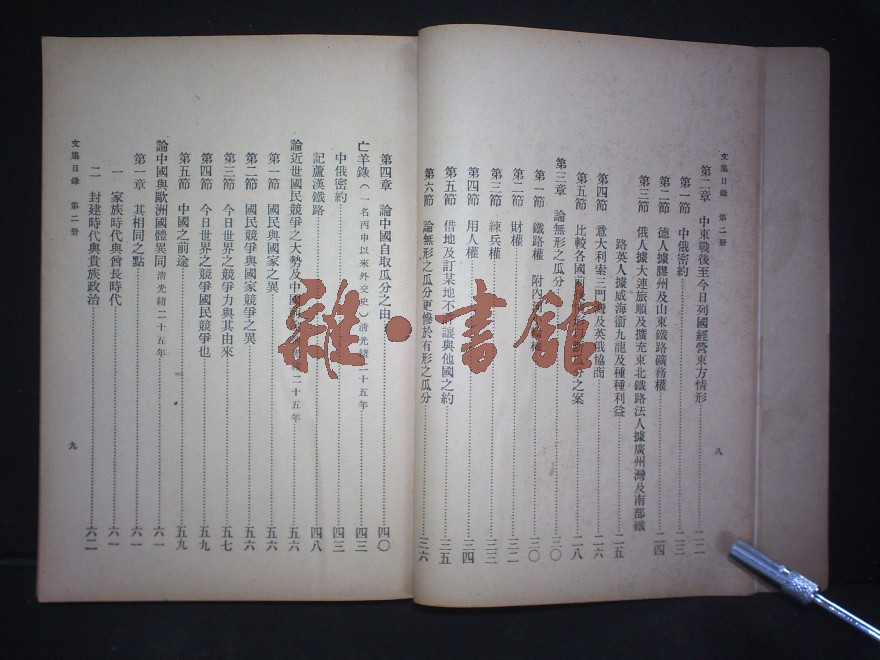 文集目錄　第二册
第二章　中東戰後至今日列國經營東方情形……二二
第一節　中俄密約……二三
第二節　德人據膠州及山東鐵路礦務權……二四
第三節　俄人據大連旅順及擴充東北鐵路法人據廣州灣及南部鐵
路英人據威海衞九龍及種種利益……二五
第四節　意大利索三門灣及英俄協商……二六
第五節　比較各國前後之案……二八
第三章　論無形之瓜分……三〇
第一節　鐵路權　附內河權……三〇
第二節　財權……三二
第三節　練兵權……三三
第四節　用人權……三四
第五節　借地及訂某地不讓與他國之約……三五
第六節　論無形之瓜分更慘於有形之瓜分……三六
八
第四章　論中國自取瓜分之由……四〇
亡羊錄（一名丙申以來外交史）清光緒二十五年……四三
中俄密約……四三
記蘆漢鐵路……四八
論近世國民競爭之大勢及中國二十五年……五六
第一節　國民與國家之異……五六
第二節　國民競爭與國家競爭之異……五六
第三節　今日世界之競爭力與其由來……五七
第四節　今日世界之競爭國民競爭也……五九
第五節　中國之前途……五九
論中國與歐洲國體異同　清光緒二十五年……六一
第一章　其相同之點……六一
一　家族時代與酋長時代……六一
二　封建時代與貴族政治……六二
文集目錄　第二册
九
雜·書館